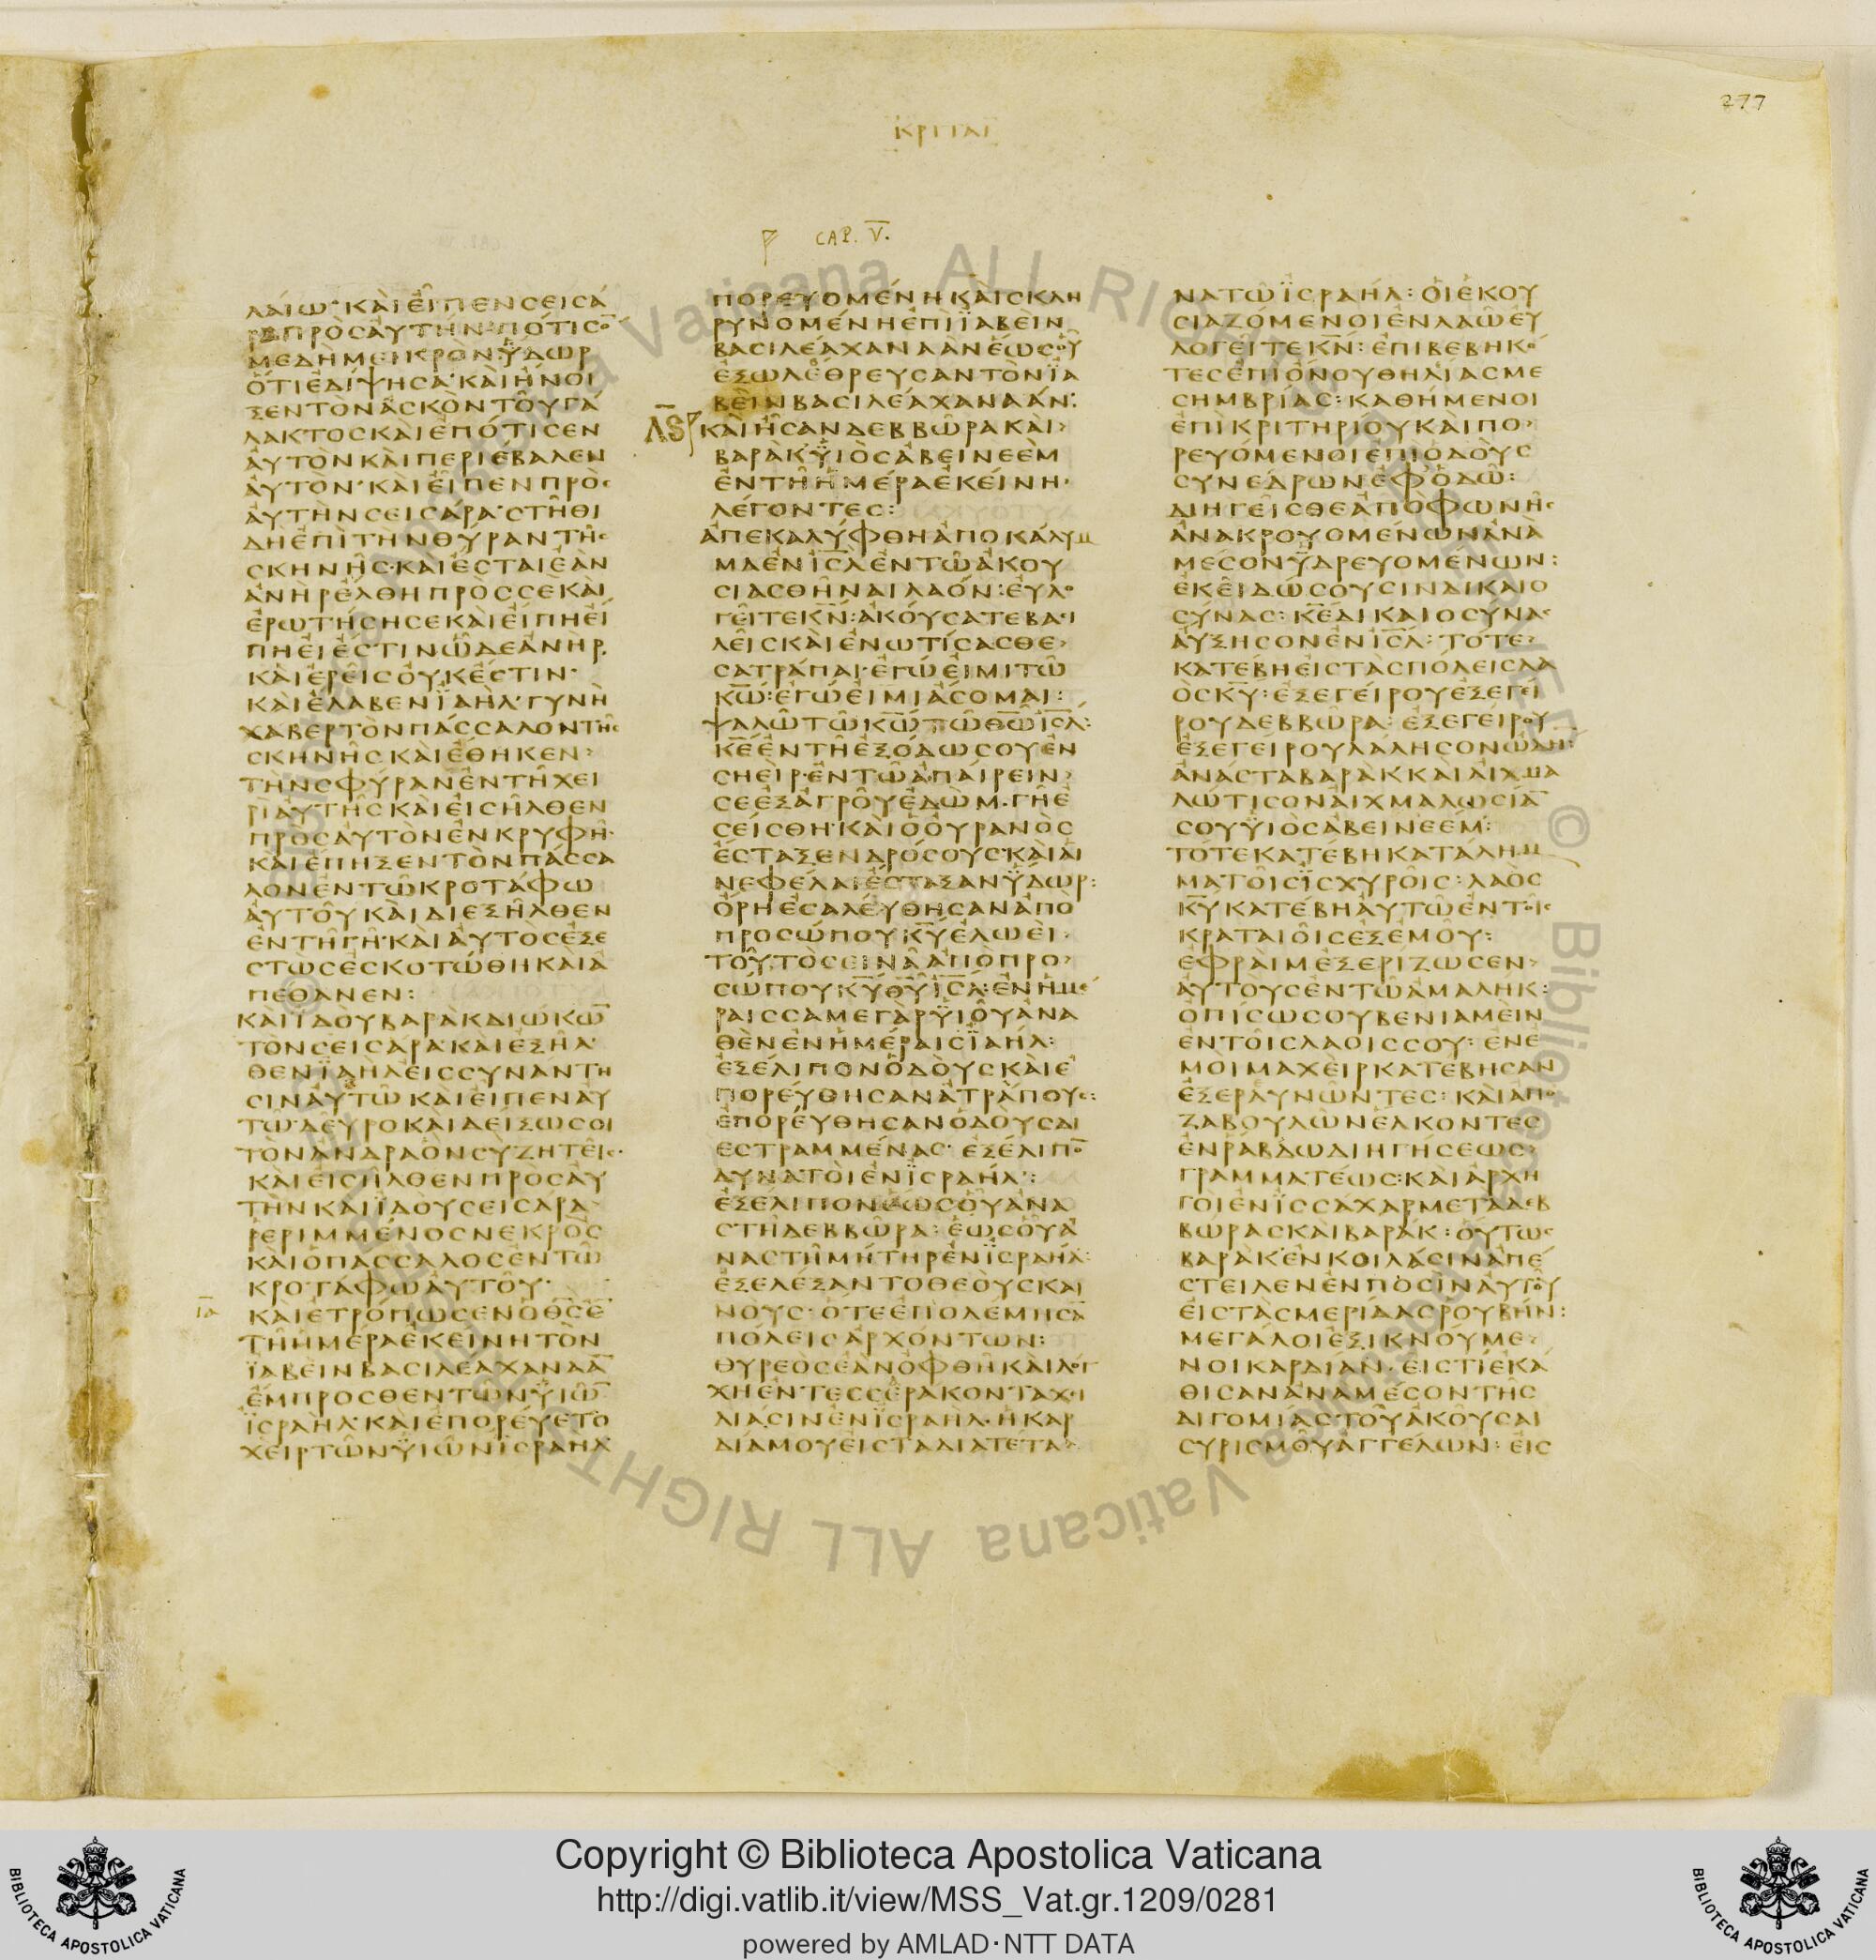 277
ΚΡΙΤΑΙ
CAP. V.
ΛΑΙΩ· ΚΑΙ ΕΙΠΕΝ CΕΙCΑ
ΡΑ ΠΡΟC ΑΥΤΗΝ ΠΟΤΙCΟ̅
ΜΕ ΔΗ ΜΕΙΚΡΟΝ ΫΔΩΡ
ΟΤΙ ΕΔΙΨΗCΑ· ΚΑΙ ΗΝΟΙ
ΞΕΝ ΤΟΝ ΑCΚΟΝ ΤΟΥ ΓΑ
ΛΑΚΤΟC ΚΑΙ ΕΠΟΤΙCΕΝ
ΑΥΤΟΝ ΚΑΙ ΠΕΡΙΕΒΑΛΕΝ
ΑΥΤΟΝ· ΚΑΙ ΕΙΠΕΝ ΠΡΟC
ΑΥΤΗΝ CΕΙCΑΡΑ· CΤΗΘΙ
ΔΗ ΕΠΙ ΤΗΝ ΘΥΡΑΝ ΤΗC
CΚΗΝΗC· ΚΑΙ ΕCΤΑΙ ΕΑΝ
ΑΝΗΡ ΕΛΘΗ ΠΡΟC CΕ ΚΑΙ
ΕΡΩΤΗCΗ CΕ ΚΑΙ ΕΙΠΗ ΕΙ
ΠΗ ΕΙ ΕCΤΙΝ ΩΔΕ ΑΝΗΡ
ΚΑΙ ΕΡΕΙC ΟΥΚ ΕCΤΙΝ·
ΚΑΙ ΕΛΑΒΕΝ ΪΑΗΛ· ΓΥΝΗ
ΧΑΒΕΡ ΤΟΝ ΠΑCCΑΛΟΝ ΤΗC
CΚΗΝΗC ΚΑΙ ΕΘΗΚΕΝ
ΤΗΝ CΦΥΡΑΝ ΕΝ ΤΗ ΧΕΙ
ΡΙ ΑΥΤΗC ΚΑΙ ΕΙCΗΛΘΕΝ
ΠΡΟC ΑΥΤΟΝ ΕΝ ΚΡΥΦΗ·
ΚΑΙ ΕΠΗΞΕΝ ΤΟΝ ΠΑCCΑ
ΛΟΝ ΕΝ ΤΩ ΚΡΟΤΑΦΩ
ΑΥΤΟΥ ΚΑΙ ΔΙΕΞΗΛΘΕΝ
ΕΝ ΤΗ ΓΗ· ΚΑΙ ΑΥΤΟC ΕΞΕ
CΤΩC ΕCΚΟΤΩΘΗ ΚΑΙ Α
ΠΕΘΑΝΕΝ:
ΚΑΙ ΪΔΟΥ ΒΑΡΑΚ ΔΙΩΚΩ̅
ΤΟΝ CΕΙCΑΡΑ· ΚΑΙ ΕΞΗΛ
ΘΕΝ ΪΑΗΛ ΕΙC CΥΝΑΝΤΗ
CΙΝ ΑΥΤΩ ΚΑΙ ΕΙΠΕΝ ΑΥ
ΤΩ· ΔΕΥΡΟ ΚΑΙ ΔΕΙΞΩ CΟΙ
ΤΟΝ ΑΝΔΡΑ ΟΝ CΥ ΖΗΤΕΙC·
ΚΑΙ ΕΙCΗΛΘΕΝ ΠΡΟC ΑΥ
ΤΗΝ ΚΑΙ ΪΔΟΥ CΕΙCΑΡΑ
ΡΕΡΙΜΜΕΝΟC ΝΕΚΡΟC
ΚΑΙ Ο ΠΑCCΑΛΟC ΕΝ ΤΩ
ΚΡΟΤΑΦΩ ΑΥΤΟΥ·
ΚΑΙ ΕΤΡΟΠΩCΕΝ Ο Θ̅C̅ Ε̅
ΤΗ ΗΜΕΡΑ ΕΚΕΙΝΗ ΤΟΝ
ΪΑΒΕΙΝ ΒΑCΙΛΕΑ ΧΑΝΑΑ̅
ΕΜΠΡΟCΘΕΝ ΤΩΝ ΫΙΩ̅
ΪCΡΑΗΛ· ΚΑΙ ΕΠΟΡΕΥΕΤΟ
ΧΕΙΡ ΤΩΝ ΫΙΩΝ ΪCΡΑΗΛ
ΠΟΡΕΥΟΜΕΝΗ ΚΑΙ CΚΛΗ
ΡΥΝΟΜΕΝΗ ΕΠΙ ΪΑΒΕΙΝ
ΒΑCΙΛΕΑ ΧΑΝΑΑΝ ΕΩC ΟΥ
ΕΞΩΛΕΘΡΕΥCΑΝ ΤΟΝ ΪΑ
ΒΕΙΝ ΒΑCΙΛΕΑ ΧΑΝΑΑΝ:
ΛϚ ΚΑΙ ΗCΑΝ ΔΕΒΒΩΡΑ ΚΑΙ
ΒΑΡΑΚ ΫΙΟC ΑΒΕΙΝΕΕΜ
ΕΝ ΤΗ ΗΜΕΡΑ ΕΚΕΙΝΗ·
ΛΕΓΟΝΤΕC:
ΑΠΕΚΑΛΥΦΘΗ ΑΠΟΚΑΛΥΜ
ΜΑ ΕΝ Ι̅C̅Λ̅ ΕΝ ΤΩ ΑΚΟΥ
CΙΑCΘΗΝΑΙ ΛΑΟΝ: ΕΥΛΟ
ΓΕΙΤΕ Κ̅Ν̅: ΑΚΟΥCΑΤΕ ΒΑCΙ
ΛΕΙC ΚΑΙ ΕΝΩΤΙCΑCΘΕ
CΑΤΡΑΠΑΙ· ΕΓΩ ΕΙΜΙ ΤΩ
Κ̅Ω̅: ΕΓΩ ΕΙΜΙ ΑCΟΜΑΙ:
ΨΑΛΩ ΤΩ Κ̅Ω̅ ΤΩ Θ̅Ω̅ Ι̅C̅Λ̅:
Κ̅Ε̅ ΕΝ ΤΗ ΕΞΟΔΩ CΟΥ ΕΝ
CΗΕΙΡ· ΕΝ ΤΩ ΑΠΑΙΡΕΙΝ
CΕ ΕΞ ΑΓΡΟΥ ΕΔΩΜ· ΓΗ Ε
CΕΙCΘΗ· ΚΑΙ Ο ΟΥΡΑΝΟC
ΕCΤΑΞΕΝ ΔΡΟCΟΥC· ΚΑΙ ΑΙ
ΝΕΦΕΛΑΙ ΕCΤΑΞΑΝ ΫΔΩΡ:
ΟΡΗ ΕCΑΛΕΥΘΗCΑΝ ΑΠΟ
ΠΡΟCΩΠΟΥ Κ̅Υ̅ ΕΛΩΕΙ
ΤΟΥΤΟ CΕΙΝΑ ΑΠΟ ΠΡΟ
CΩΠΟΥ Κ̅Υ̅ Θ̅Υ̅ Ι̅C̅Λ̅: ΕΝ ΗΜΕ
ΡΑΙC CΑΜΕΓΑΡ ΫΙΟΥ ΑΝΑ
ΘΕΝ ΕΝ ΗΜΕΡΑΙC ΪΑΗΛ:
ΕΞΕΛΙΠΟΝ ΟΔΟΥC ΚΑΙ Ε
ΠΟΡΕΥΘΗCΑΝ ΑΤΡΑΠΟΥC:
ΕΠΟΡΕΥΘΗCΑΝ ΟΔΟΥC ΔΙ
ΕCΤΡΑΜΜΕΝΑC· ΕΞΕΛΙΠΟ̅
ΔΥΝΑΤΟΙ ΕΝ ΪCΡΑΗΛ:
ΕΞΕΛΙΠΟΝ ΕΩC ΟΥ ΑΝΑ
CΤΗ ΔΕΒΒΩΡΑ: ΕΩC ΟΥ Α
ΝΑCΤΗ ΜΗΤΗΡ ΕΝ ΪCΡΑΗΛ:
ΕΞΕΛΕΞΑΝΤΟ ΘΕΟΥC ΚΑΙ
ΝΟΥC· ΟΤΕ ΕΠΟΛΕΜΗCΑ̅
ΠΟΛΕΙC ΑΡΧΟΝΤΩΝ:
ΘΥΡΕΟC ΕΑΝ ΟΦΘΗ ΚΑΙ ΛΟΓ
ΧΗ ΕΝ ΤΕCCΕΡΑΚΟΝΤΑ ΧΙ
ΛΙΑCΙΝ ΕΝ ΪCΡΑΗΛ· Η ΚΑΡ
ΔΙΑ ΜΟΥ ΕΙC ΤΑ ΔΙΑΤΕΤΑ
ΝΑ ΤΩ ΪCΡΑΗΛ: ΟΙ ΕΚΟΥ
CΙΑΖΟΜΕΝΟΙ ΕΝ ΛΑΩ ΕΥ
ΛΟΓΕΙΤΕ Κ̅Ν̅: ΕΠΙΒΕΒΗΚΟ
ΤΕC ΕΠΙ ΟΝΟΥ ΘΗΛΙΑC ΜΕ
CΗΜΒΡΙΑC: ΚΑΘΗΜΕΝΟΙ
ΕΠΙ ΚΡΙΤΗΡΙΟΥ ΚΑΙ ΠΟ
ΡΕΥΟΜΕΝΟΙ ΕΠΙ ΟΔΟΥC
CΥΝΕΔΡΩΝ ΕΦ ΟΔΩ:
ΔΙΗΓΕΙCΘΕ ΑΠΟ ΦΩΝΗC
ΑΝΑΚΡΟΥΟΜΕΝΩΝ ΑΝΑ
ΜΕCΟΝ ΫΔΡΕΥΟΜΕΝΩΝ:
ΕΚΕΙ ΔΩCΟΥCΙΝ ΔΙΚΑΙΟ
CΥΝΑC: Κ̅Ε̅ ΔΙΚΑΙΟCΥΝΑC
ΑΥΞΗCΟΝ ΕΝ Ι̅C̅Λ̅: ΤΟΤΕ
ΚΑΤΕΒΗ ΕΙC ΤΑC ΠΟΛΕΙC ΛΑ
ΟC Κ̅Υ̅: ΕΞΕΓΕΙΡΟΥ ΕΞΕΓΕΙ
ΡΟΥ ΔΕΒΒΩΡΑ: ΕΞΕΓΕΙΡΟΥ
ΕΞΕΓΕΙΡΟΥ ΛΑΛΗCΟΝ ΩΔΗ̅:
ΑΝΑCΤΑ ΒΑΡΑΚ ΚΑΙ ΑΙΧΜΑ
ΛΩΤΙCΟΝ ΑΙΧΜΑΛΩCΙΑ̅
CΟΥ ΫΙΟC ΑΒΕΙΝΕΕΜ:
ΤΟΤΕ ΚΑΤΕΒΗ ΚΑΤΑΛΗΜ
ΜΑ ΤΟΙC ΪCΧΥΡΟΙC: ΛΑΟC
Κ̅Υ̅ ΚΑΤΕΒΗ ΑΥΤΩ ΕΝ ΤΟΙC
ΚΡΑΤΑΙΟΙC ΕΞ ΕΜΟΥ:
ΕΦΡΑΙΜ ΕΞΕΡΙΖΩCΕΝ
ΑΥΤΟΥC ΕΝ ΤΩ ΑΜΑΛΗΚ:
ΟΠΙCΩ CΟΥ ΒΕΝΙΑΜΕΙΝ
ΕΝ ΤΟΙC ΛΑΟΙC CΟΥ: ΕΝ Ε
ΜΟΙ ΜΑΧΕΙΡ ΚΑΤΕΒΗCΑΝ
ΕΞΕΡΑΥΝΩΝΤΕC: ΚΑΙ ΑΠΟ
ΖΑΒΟΥΛΩΝ ΕΛΚΟΝΤΕC
ΕΝ ΡΑΒΔΩ ΔΙΗΓΗCΕΩC
ΓΡΑΜΜΑΤΕΩC: ΚΑΙ ΑΡΧΗ
ΓΟΙ ΕΝ ΪCCΑΧΑΡ ΜΕΤΑ ΔΕΒ
ΒΩΡΑC ΚΑΙ ΒΑΡΑΚ: ΟΥΤΩC
ΒΑΡΑΚ ΕΝ ΚΟΙΛΑCΙΝ ΑΠΕ
CΤΕΙΛΕΝ ΕΝ ΠΟCΙΝ ΑΥΤΟΥ
ΕΙC ΤΑC ΜΕΡΙΔΑC ΡΟΥΒΗΝ:
ΜΕΓΑΛΟΙ ΕΞΙΚΝΟΥΜΕ
ΝΟΙ ΚΑΡΔΙΑΝ· ΕΙC ΤΙ ΕΚΑ
ΘΙCΑΝ ΑΝΑ ΜΕCΟΝ ΤΗC
ΔΙΓΟΜΙΑC· ΤΟΥ ΑΚΟΥCΑΙ
CΥΡΙCΜΟΥ ΑΓΓΕΛΩΝ: ΕΙC
Copyright © Biblioteca Apostolica Vaticana
http://digi.vatlib.it/view/MSS_Vat.gr.1209/0281
powered by AMLAD·NTT DATA
BIBLIOTECA APOSTOLICA VATICANA
BIBLIOTECA APOSTOLICA VATICANA